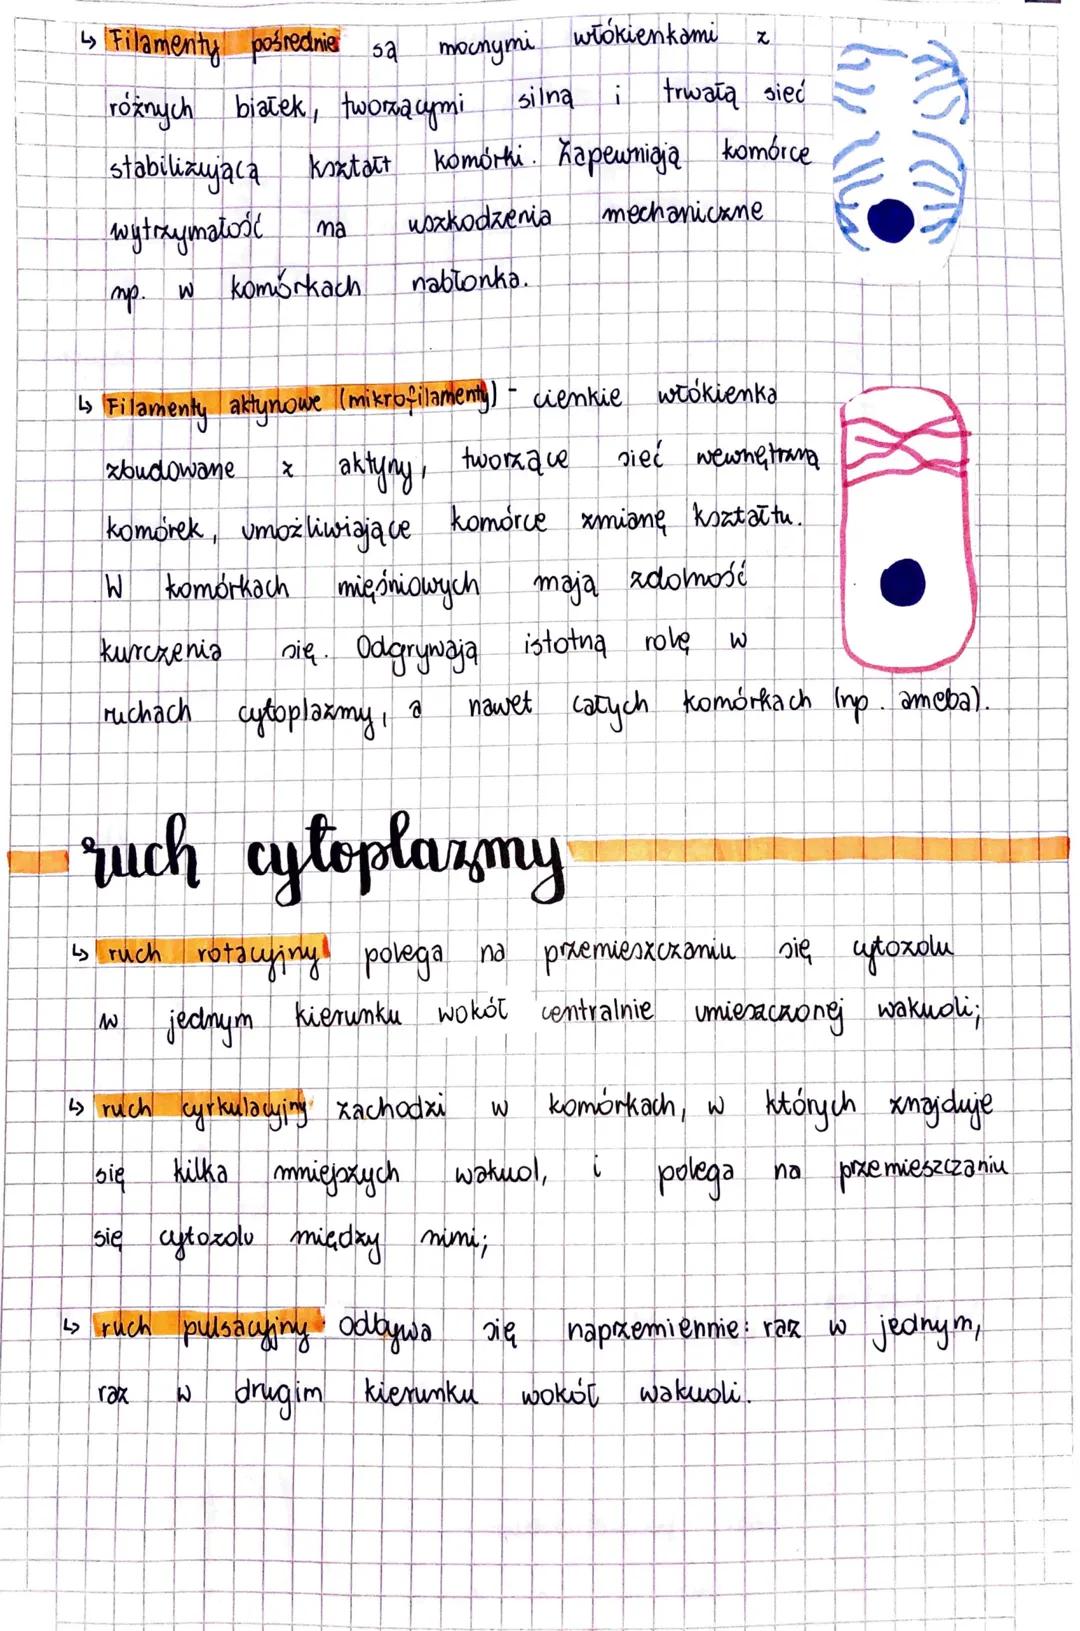 ↳ Filamenty pośrednie są mocnymi włókienkami z
różnych białek, tworzącymi silną i trwałą sieć
stabilizującą kształt komórki. Zapewniają komórce
wytrzymałość na uszkodzenia mechaniczne
np. w komórkach nabłonka.
↳ Filamenty aktynowe (mikrofilamenty) - cienkie włókienka
zbudowane z aktyny, tworzące sieć wewnętrzną
komórek, umożliwiające komórce zmianę kształtu.
W komórkach mięśniowych mają zdolność
kurczenia się. Odgrywają istotną rolę w
ruchach cytoplazmy, a nawet całych komórkach (np. ameba).
ruch cytoplazmy
↳ ruch rotacyjny polega na przemieszczaniu się cytozolu
w jednym kierunku wokół centralnie umieszczonej wakuoli;
↳ ruch cyrkulacyjny zachodzi w komórkach, w których znajduje
się kilka mniejszych wakuol, i polega na przemieszczaniu
się cytozolu między nimi;
↳ ruch pulsacyjny odbywa się naprzemiennie: raz w jednym,
raz w drugim kierunku wokół wakuoli.